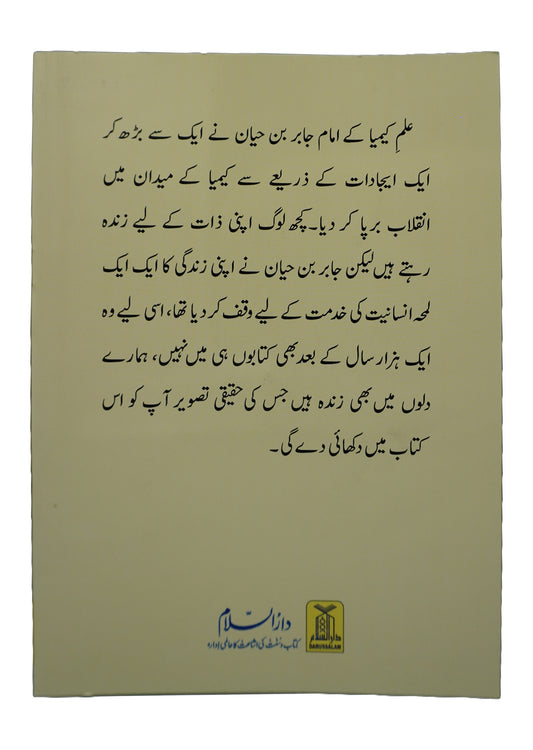 علمِ کیمیا کے امام جابر بن حیان نے ایک سے بڑھ کر
ایک ایجادات کے ذریعے سے کیمیا کے میدان میں
انقلاب برپا کر دیا۔ کچھ لوگ اپنی ذات کے لیے زندہ
رہتے ہیں لیکن جابر بن حیان نے اپنی زندگی کا ایک ایک
لمحہ انسانیت کی خدمت کے لیے وقف کر دیا تھا، اسی لیے وہ
ایک ہزار سال کے بعد بھی کتابوں ہی میں نہیں، ہمارے
دلوں میں بھی زندہ ہیں جس کی حقیقی تصویر آپ کو اس
کتاب میں دکھائی دے گی۔
دارالسلام
کتاب و سنت کی اشاعت کا عالمی ادارہ
دارالسلام
DARUSSALAM